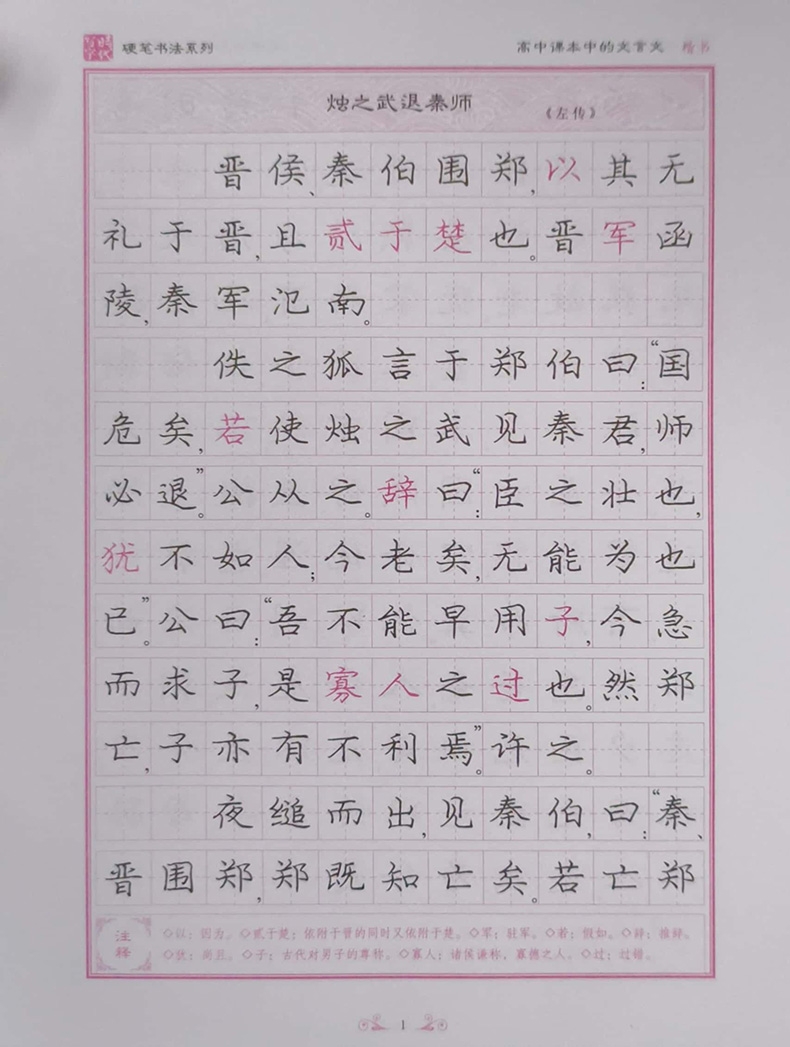 硬笔书法系列
高中课本中的文言文 楷书
烛之武退秦师
《左传》
晋侯、秦伯围郑,以其无
礼于晋,且贰于楚也。晋军函
陵,秦军氾南。
佚之狐言于郑伯曰:“国
危矣,若使烛之武见秦君,师
必退”。公从之。辞曰:“臣之壮也,
犹不如人;今老矣,无能为也
已”。公曰:“吾不能早用子,今急
而求子,是寡人之过也。然郑
亡,子亦有不利焉”。许之。
夜缒而出,见秦伯,曰:“秦、
晋围郑,郑既知亡矣。若亡郑
注释
◇以:因为。◇贰于楚:依附于晋的同时又依附于楚。◇军:驻军。◇若:假如。◇辞:推辞。
◇犹:尚且。◇子:古代对男子的尊称。◇寡人:诸侯谦称,寡德之人。◇过:过错。
1